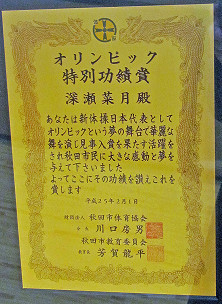 オリンピック
特別功績賞
深瀬菜月殿
あなたは新体操日本代表として
オリンピックという夢の舞台で華麗な
舞を演じ見事入賞を果たす活躍を
され秋田市民に大きな感動と夢を
与えて下さいました
よってここにその功績を讃えこれを
賞します
平成25年2月1日
財団法人 秋田市体育協会
会長 川口房男
秋田市教育委員会
教育長 芳賀龍平